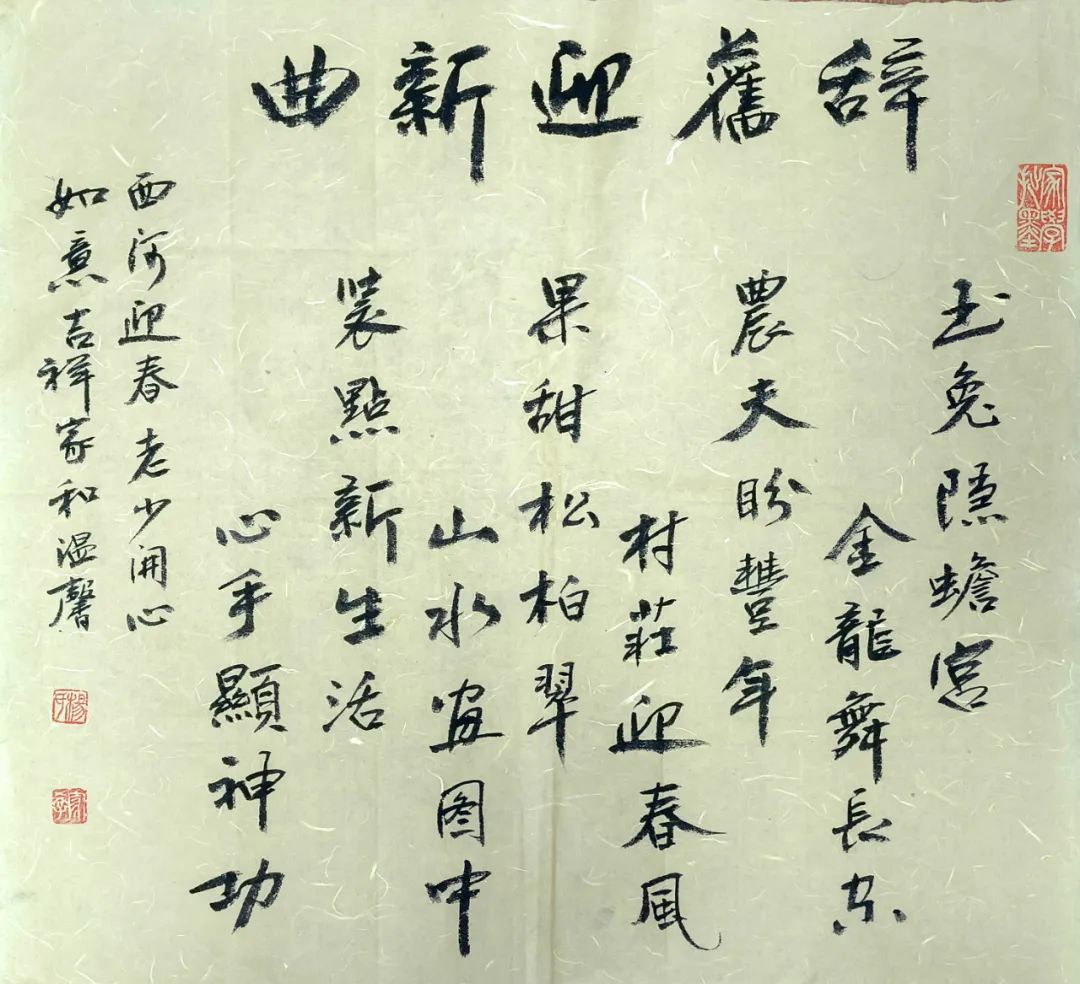 辞舊迎新曲
玉兔隐蟾宮
金龍舞長空
農夫盼豐年
村莊迎春風
果甜松柏翠
山水画图中
裝點新生活
心手顯神功
西河迎春老少開心
如意吉祥家和温馨